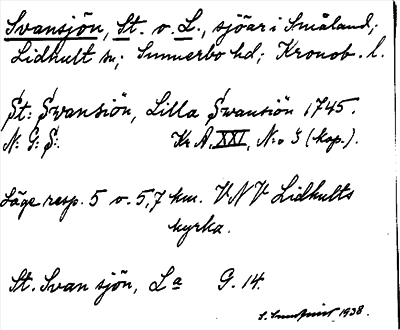 Svansjön, St. o. L., sjöar i Småland;
Lidhult sn; Sunnerbo hd; Kronob. l.
St: Swansiön, Lilla Swansiön 1745.
N: G: S: Kr A. XXI, N:o 3 (kop.).
Läge resp. 5 o. 5,7 km. VNV Lidhults
kyrka.
St. Svansjön, La G. 14.
1938.